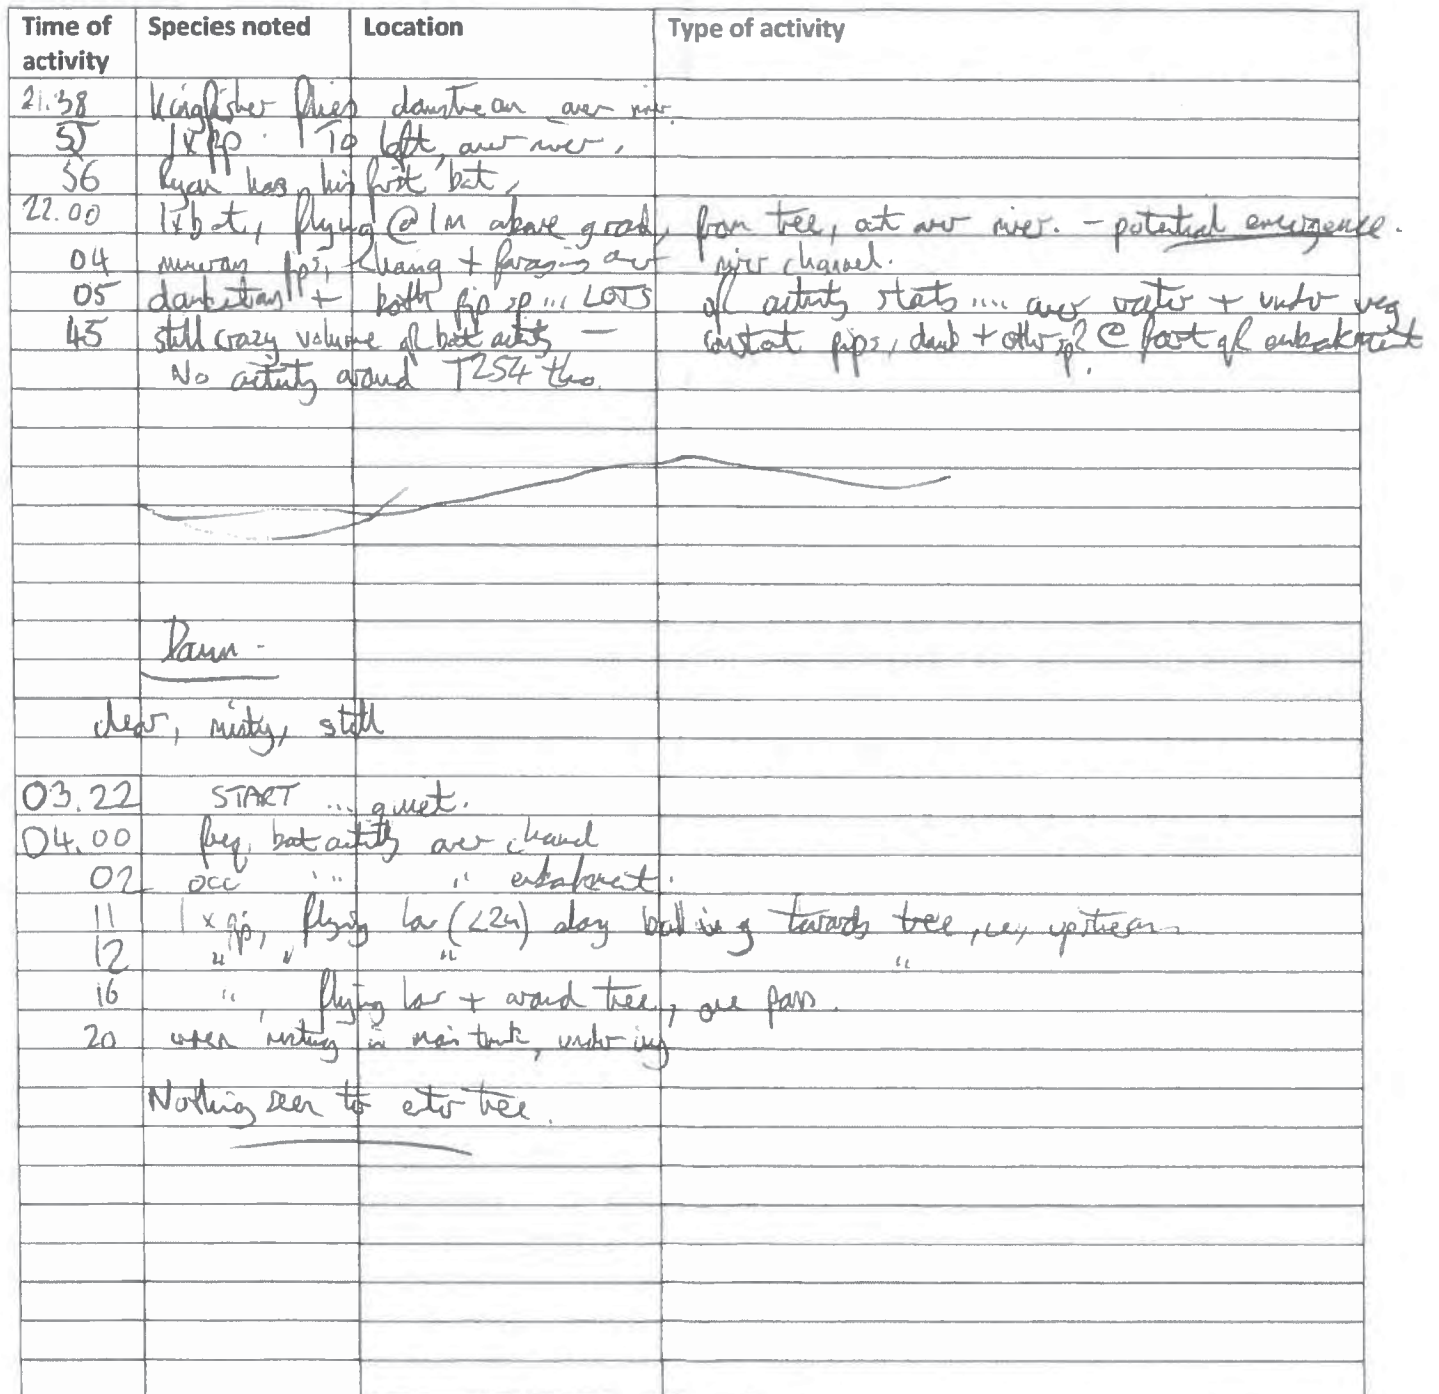 Time of activity Species noted Location Type of activity
21.38 Kingfisher flies downstream over river.
55 1x pip. To left, over river.
56 Ryan has his first bat,
22.00 1x bat, flying @ 1m above ground, from tree, out over river. - potential emergence.
04 pips, + foraging over river channel.
05 daubentons + both pip sp... LOTS of activity starts .... over water + under veg
45 still crazy volume of bat activity - constant pips, daub + other sp? @ foot of embankment
No activity around T254 tho.
Dawn -
clear, misty, still
03.22 START ... quiet.
04.00 freq. bat activity over channel
02 occ " " " embankment.
11 1 x pip, flying low (<2m) along towards tree, ie, upstream
12 " " " "
16 " flying low + around tree, one pass.
20 wren nesting in main trunk, under ivy
Nothing seen to enter tree.